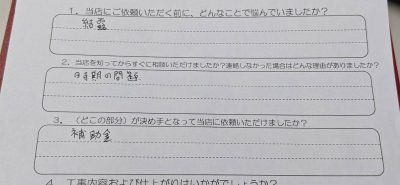 1. 当店にご依頼いただく前に、どんなことで悩んでいましたか？
結露
2. 当店を知ってからすぐに相談いただけましたか？連絡しなかった場合はどんな理由がありましたか？
時期の問題
3. （どこの部分）が決め手となって当店に依頼いただけましたか？
補助金
4. 工事内容および仕上がりはいかがでしょうか？